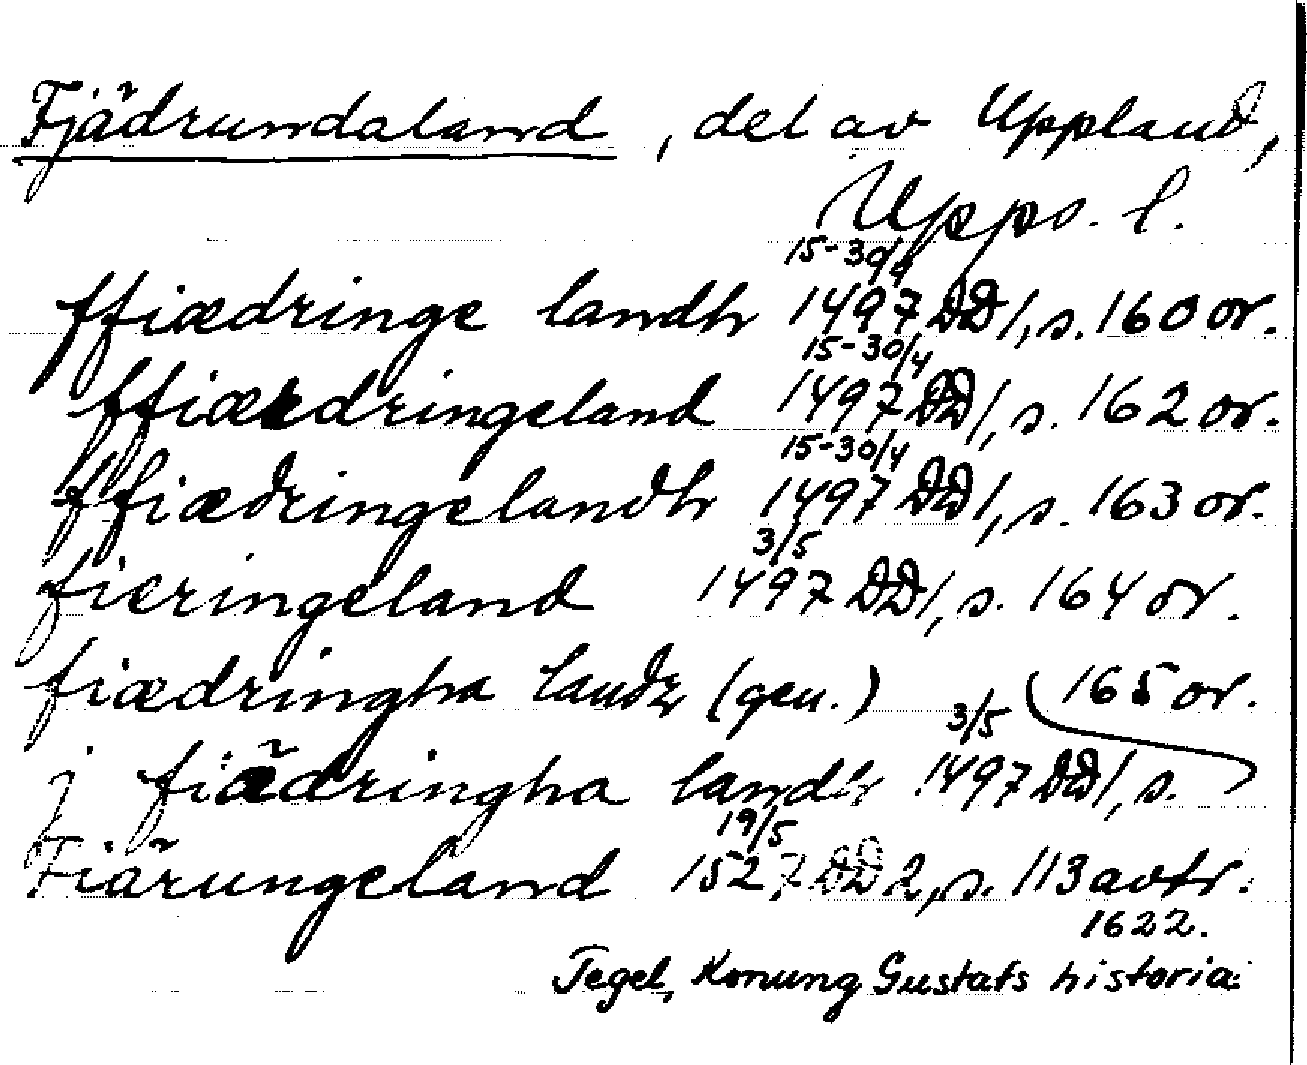 Fjädrundaland, del av Uppland,
Upps. l.
ffiædringe landh 15-30/4 1497 DD1, s. 160 or.
ffiærdringeland 15-30/4 1497 DD1, s. 162 or.
ffiædringelandh 15-30/4 1497 DD1, s. 163 or.
fieringeland 3/5 1497 DD1, s. 164 or.
fiædringha landz (gen.) 165 or.
j fiädringha landh 3/5 1497 DD1, s.
Fiärungeland 19/5 1527 DD2, s. 113 avtr.
1622.
Tegel, Konung Gustafs historia.